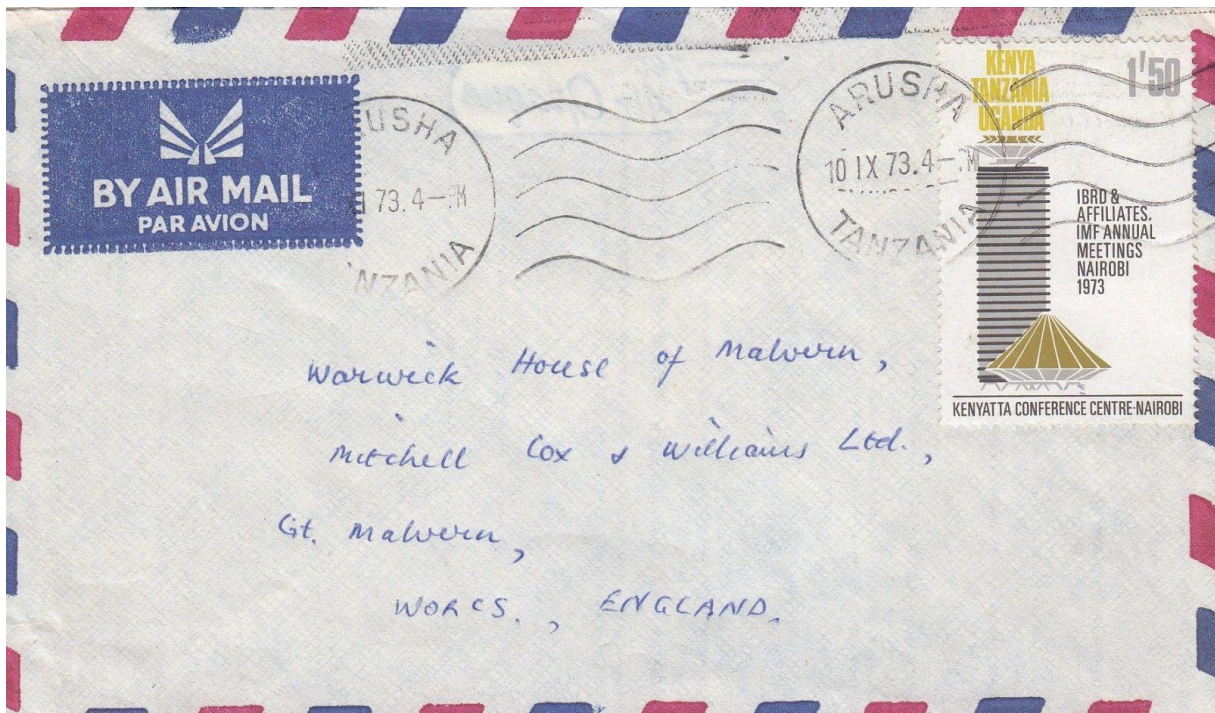 BY AIR MAIL
PAR AVION
USHA
73.4-PM
NZANIA
ARUSHA
10 IX 73.4-PM
TANZANIA
KENYA
TANZANIA
UGANDA
1'50
IBRD &
AFFILIATES.
IMF ANNUAL
MEETINGS
NAIROBI
1973
KENYATTA CONFERENCE CENTRE·NAIROBI
Warwick House of Malvern,
Mitchell Cox & Williams Ltd.,
Gt. Malvern,
WORCS., ENGLAND.